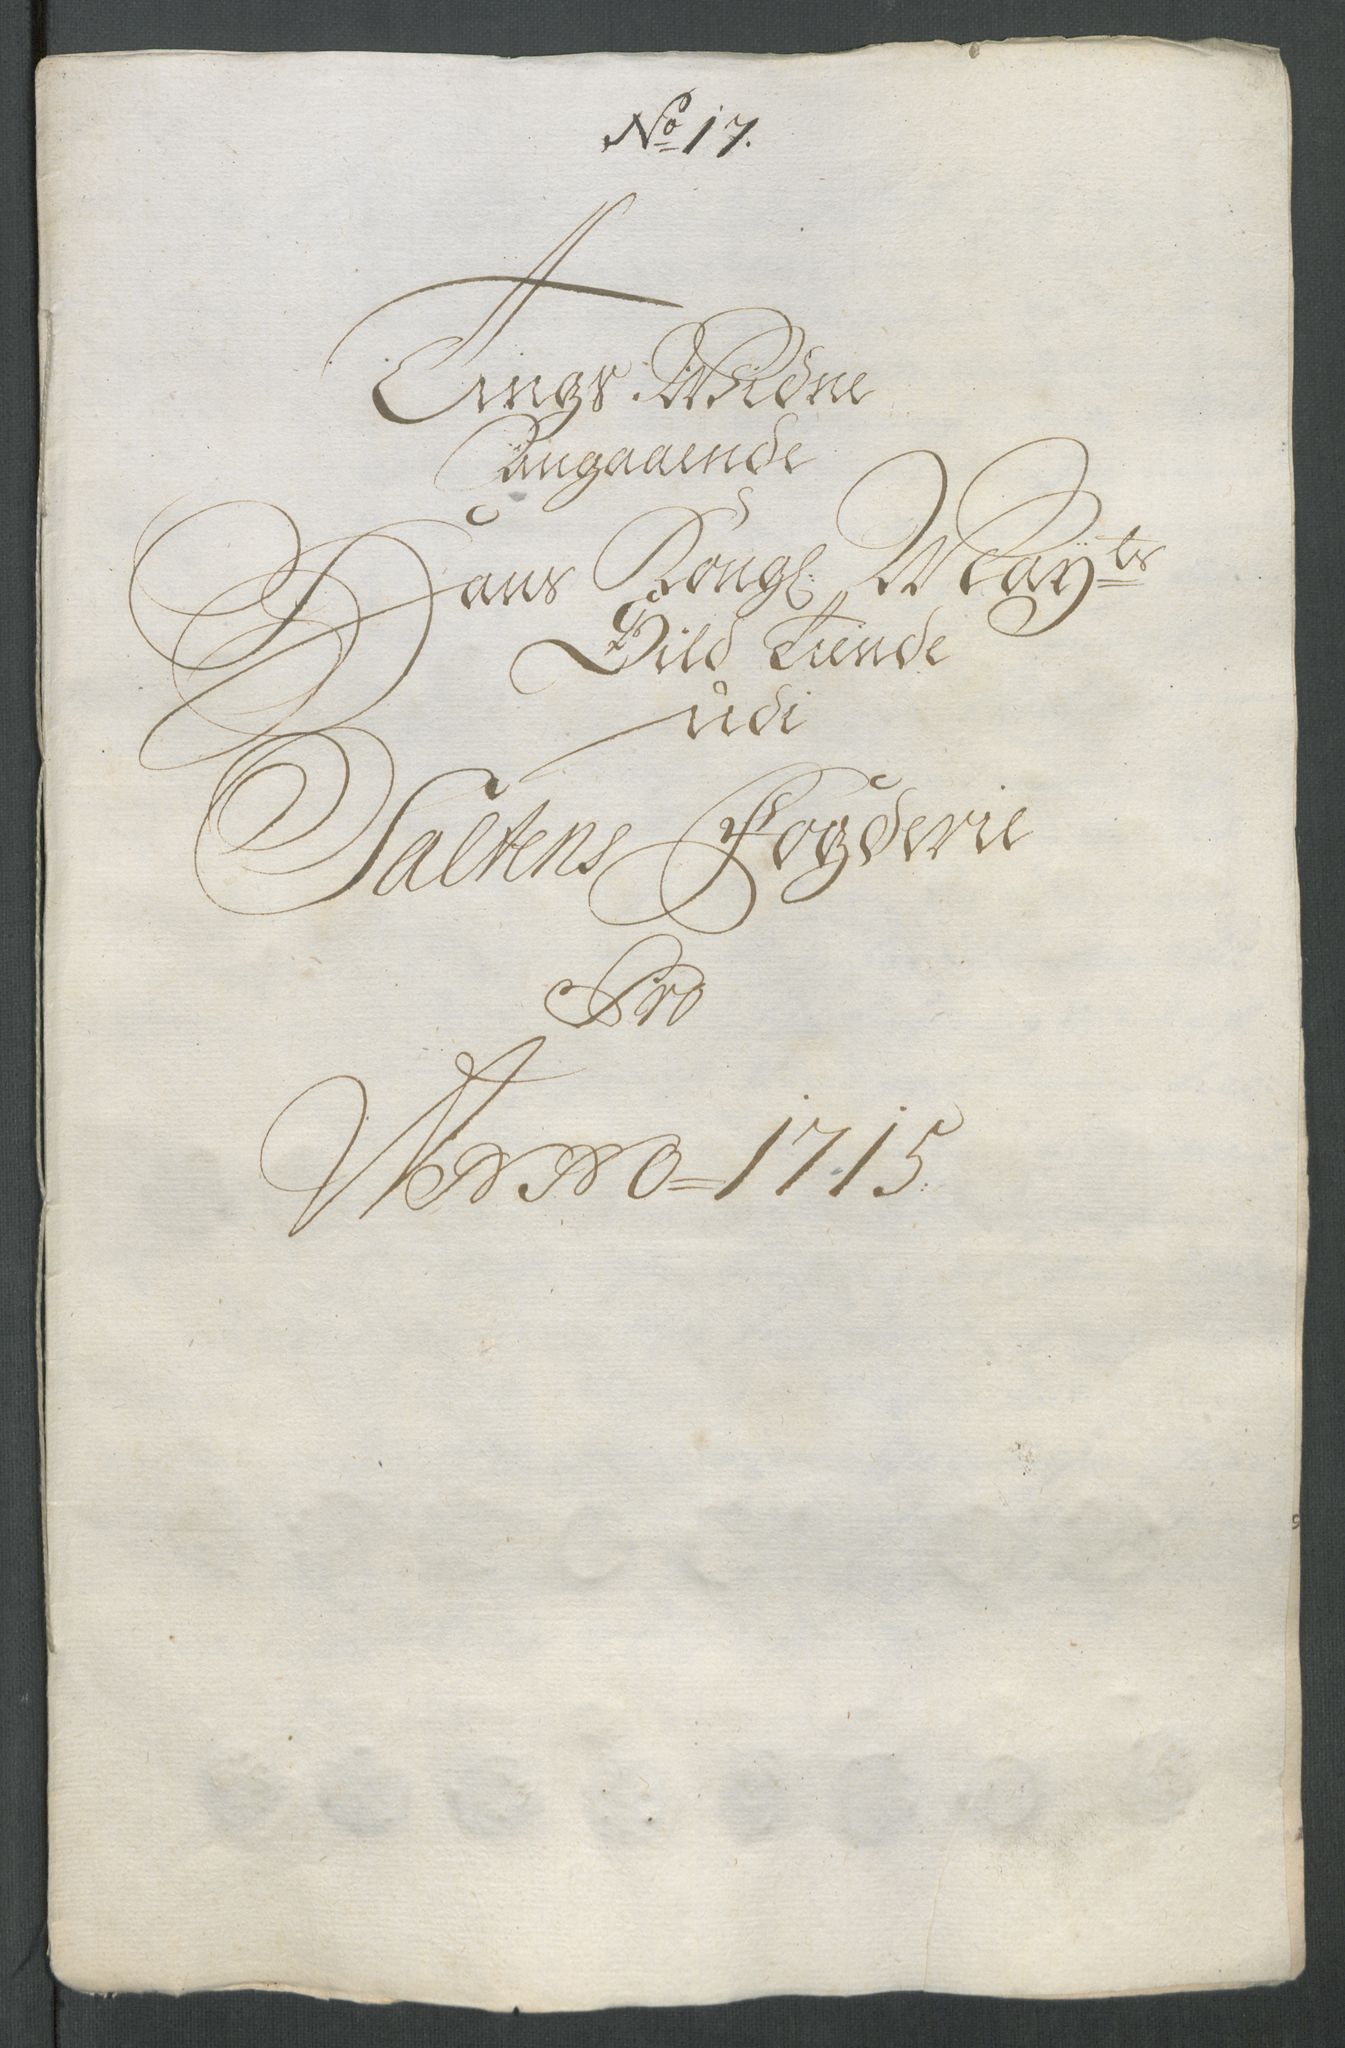 No 17.
Tings Widne
Angaaende
Hans Kongl: Mayts
Sild Tiende
udi
Saltens Fogderie
Pro
Anno = 1715